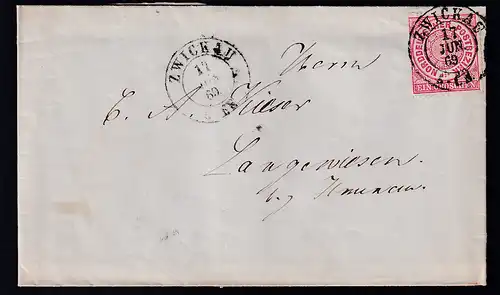 ZWICKAU
17
JUN
69
ZWICKAU
17
JUN
69
NORDDEUTSCHER POSTBEZIRK
EIN GROSCHEN
Herrn
C. A. Kieser
Langewiesen
b/ Ilmenau.